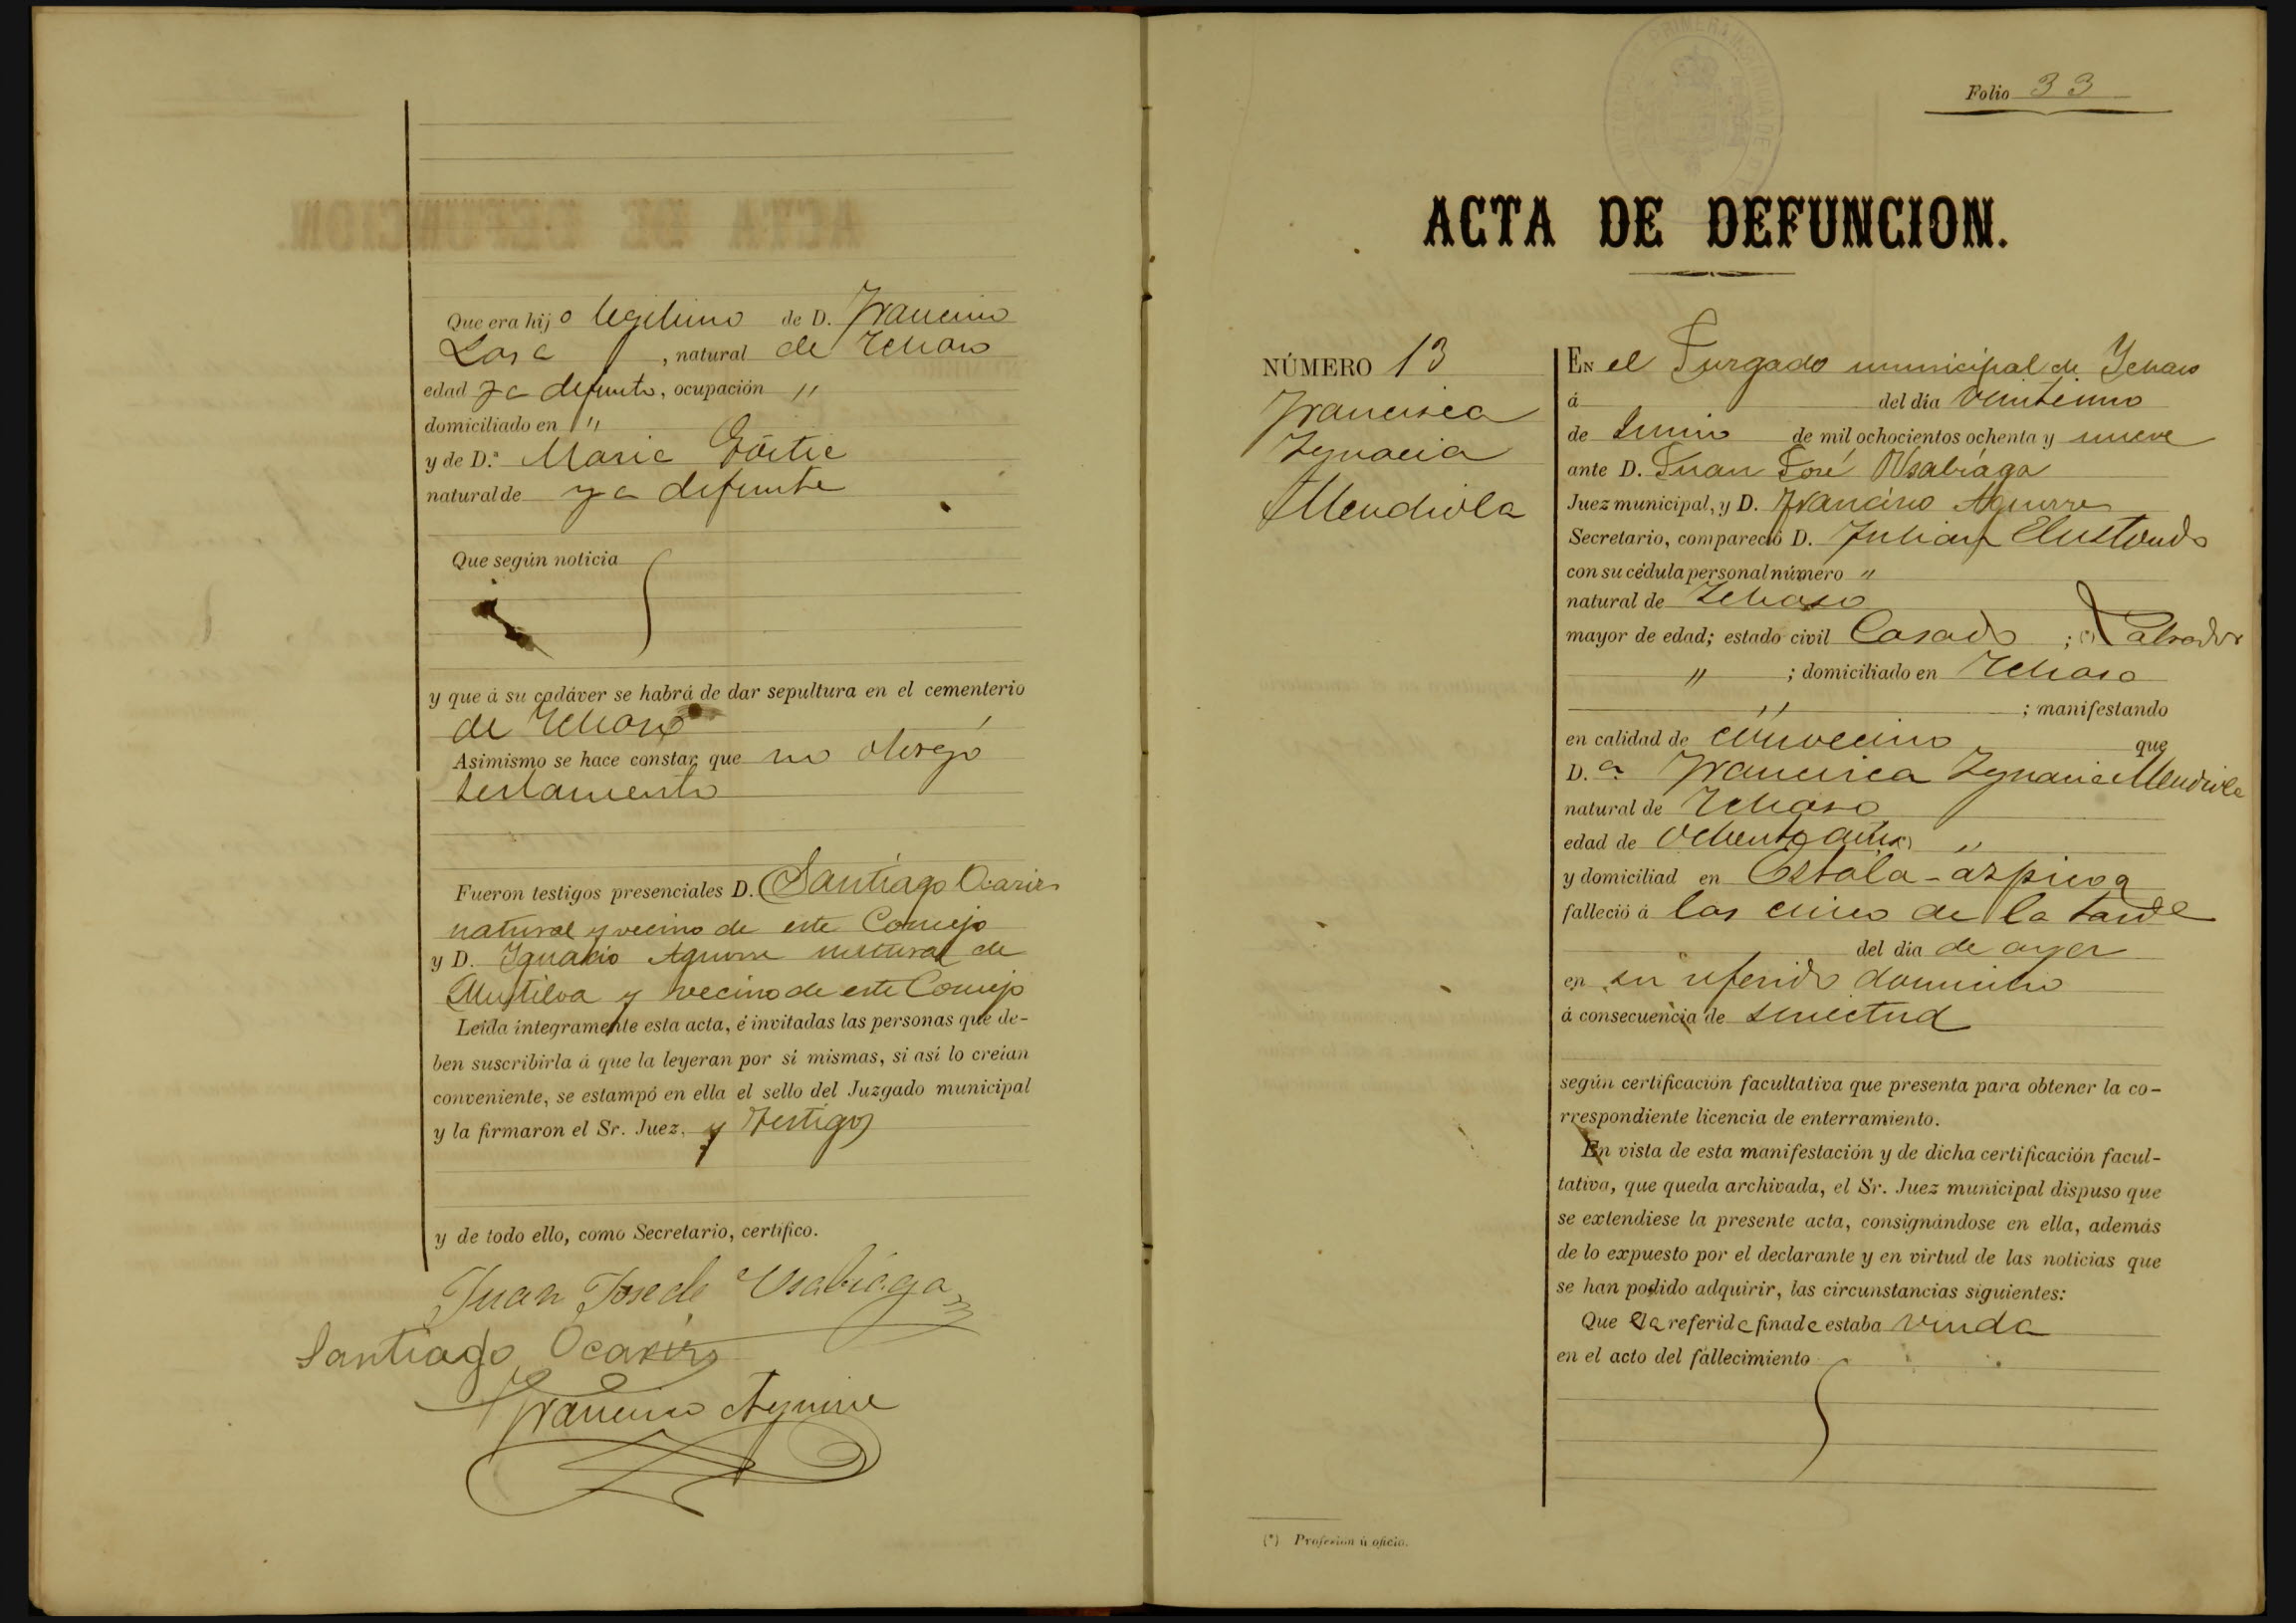 Que era hijo legitimo de D. Francisco
Lasa, natural de Ichaso
edad ya defunto, ocupación "
domiciliado en "
y de D.ª Maria Goitia
natural de ya defunta
Que según noticia
y que á su cadáver se habrá de dar sepultura en el cementerio
de Ichaso
Asimismo se hace constar que no otorgó
testamento
Fueron testigos presenciales D. Santiago Ocariz
natural y vecino de este Concejo
y D. Ignacio Aguirre natural de
Mutiloa y vecino de este Concejo
Leida integramente esta acta, é invitadas las personas que de-
ben suscribirla á que la leyeran por sí mismas, si así lo creian
conveniente, se estampó en ella el sello del Juzgado municipal
y la firmaron el Sr. Juez, y testigos
y de todo ello, como Secretario, certifico.
Juan José de Usabiaga
Santiago Ocariz
Francisco Aguirre
Folio 33
ACTA DE DEFUNCION.
NÚMERO 13
Francisca
Ygnacia
Mendiola
EN el Juzgado municipal de Ichaso
á del dia veintiuno
de Junio de mil ochocientos ochenta y nueve
ante D. Juan José Usabiaga
Juez municipal, y D. Francisco Aguirre
Secretario, compareció D. Julian Elustondo
con su cédula personal número "
natural de Ichaso
mayor de edad; estado civil Casado ; (*) Labrador
" ; domiciliado en Ichaso
" ; manifestando
en calidad de convecino que
D.ª Francisca Ygnacia Mendiola
natural de Ichaso
edad de ochenta años "
y domiciliad en Estala-azpicoa
falleció á las cinco de la tarde
del dia de ayer
en su referido domicilio
á consecuencia de senectud
según certificación facultativa que presenta para obtener la co-
rrespondiente licencia de enterramiento.
En vista de esta manifestación y de dicha certificación facul-
tativa, que queda archivada, el Sr. Juez municipal dispuso que
se extendiese la presente acta, consignándose en ella, además
de lo expuesto por el declarante y en virtud de las noticias que
se han podido adquirir, las circunstancias siguientes:
Que la referida finada estaba viuda
en el acto del fallecimiento
(*) Profesion ú oficio.